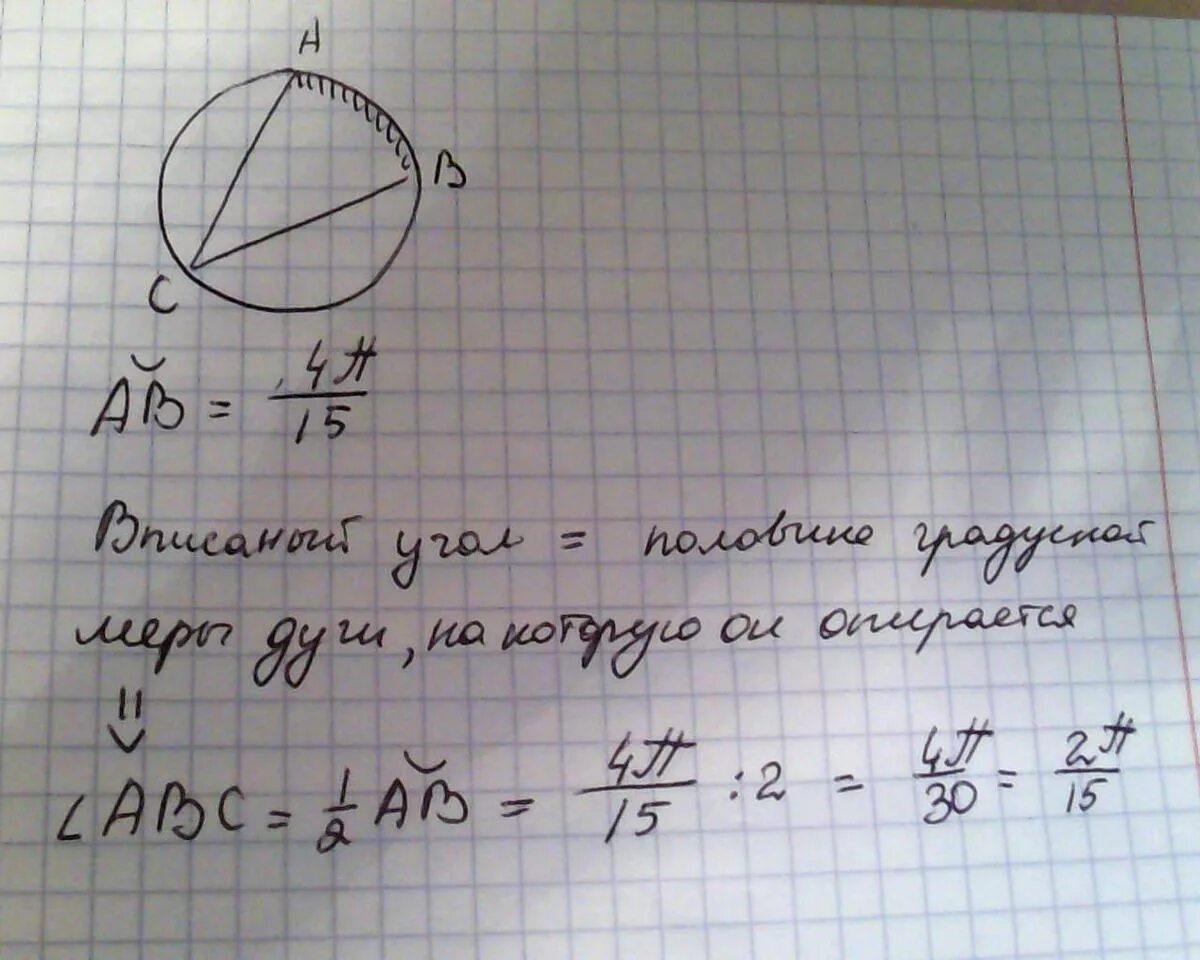 A
B
C
A͝B = 4π/15
Вписаный угол = половине градусной
меры дуги, на которую он опирается
⇓
∠ABC = 1/2 A͝B = 4π/15 : 2 = 4π/30 = 2π/15